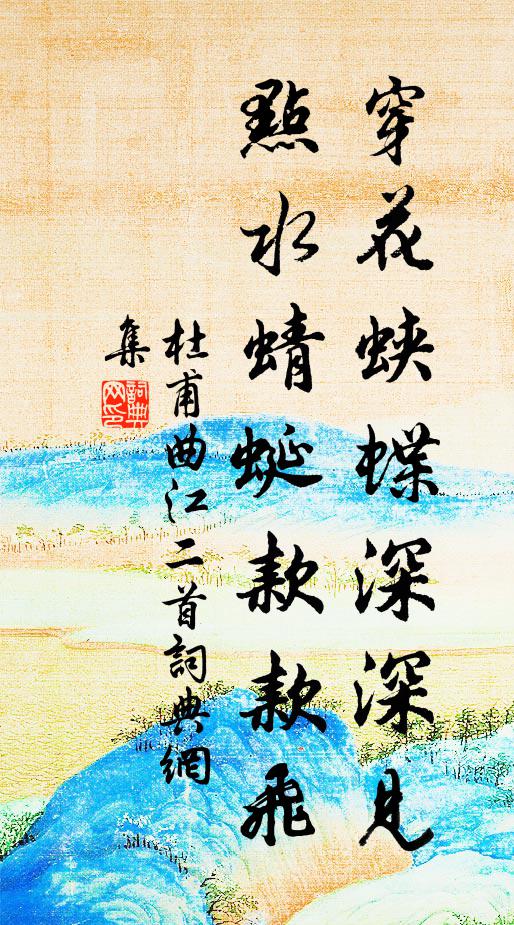 穿花蛱蝶深深見
點水蜻蜓款款飛
杜甫曲江二首詞典網
集
詞典
网印